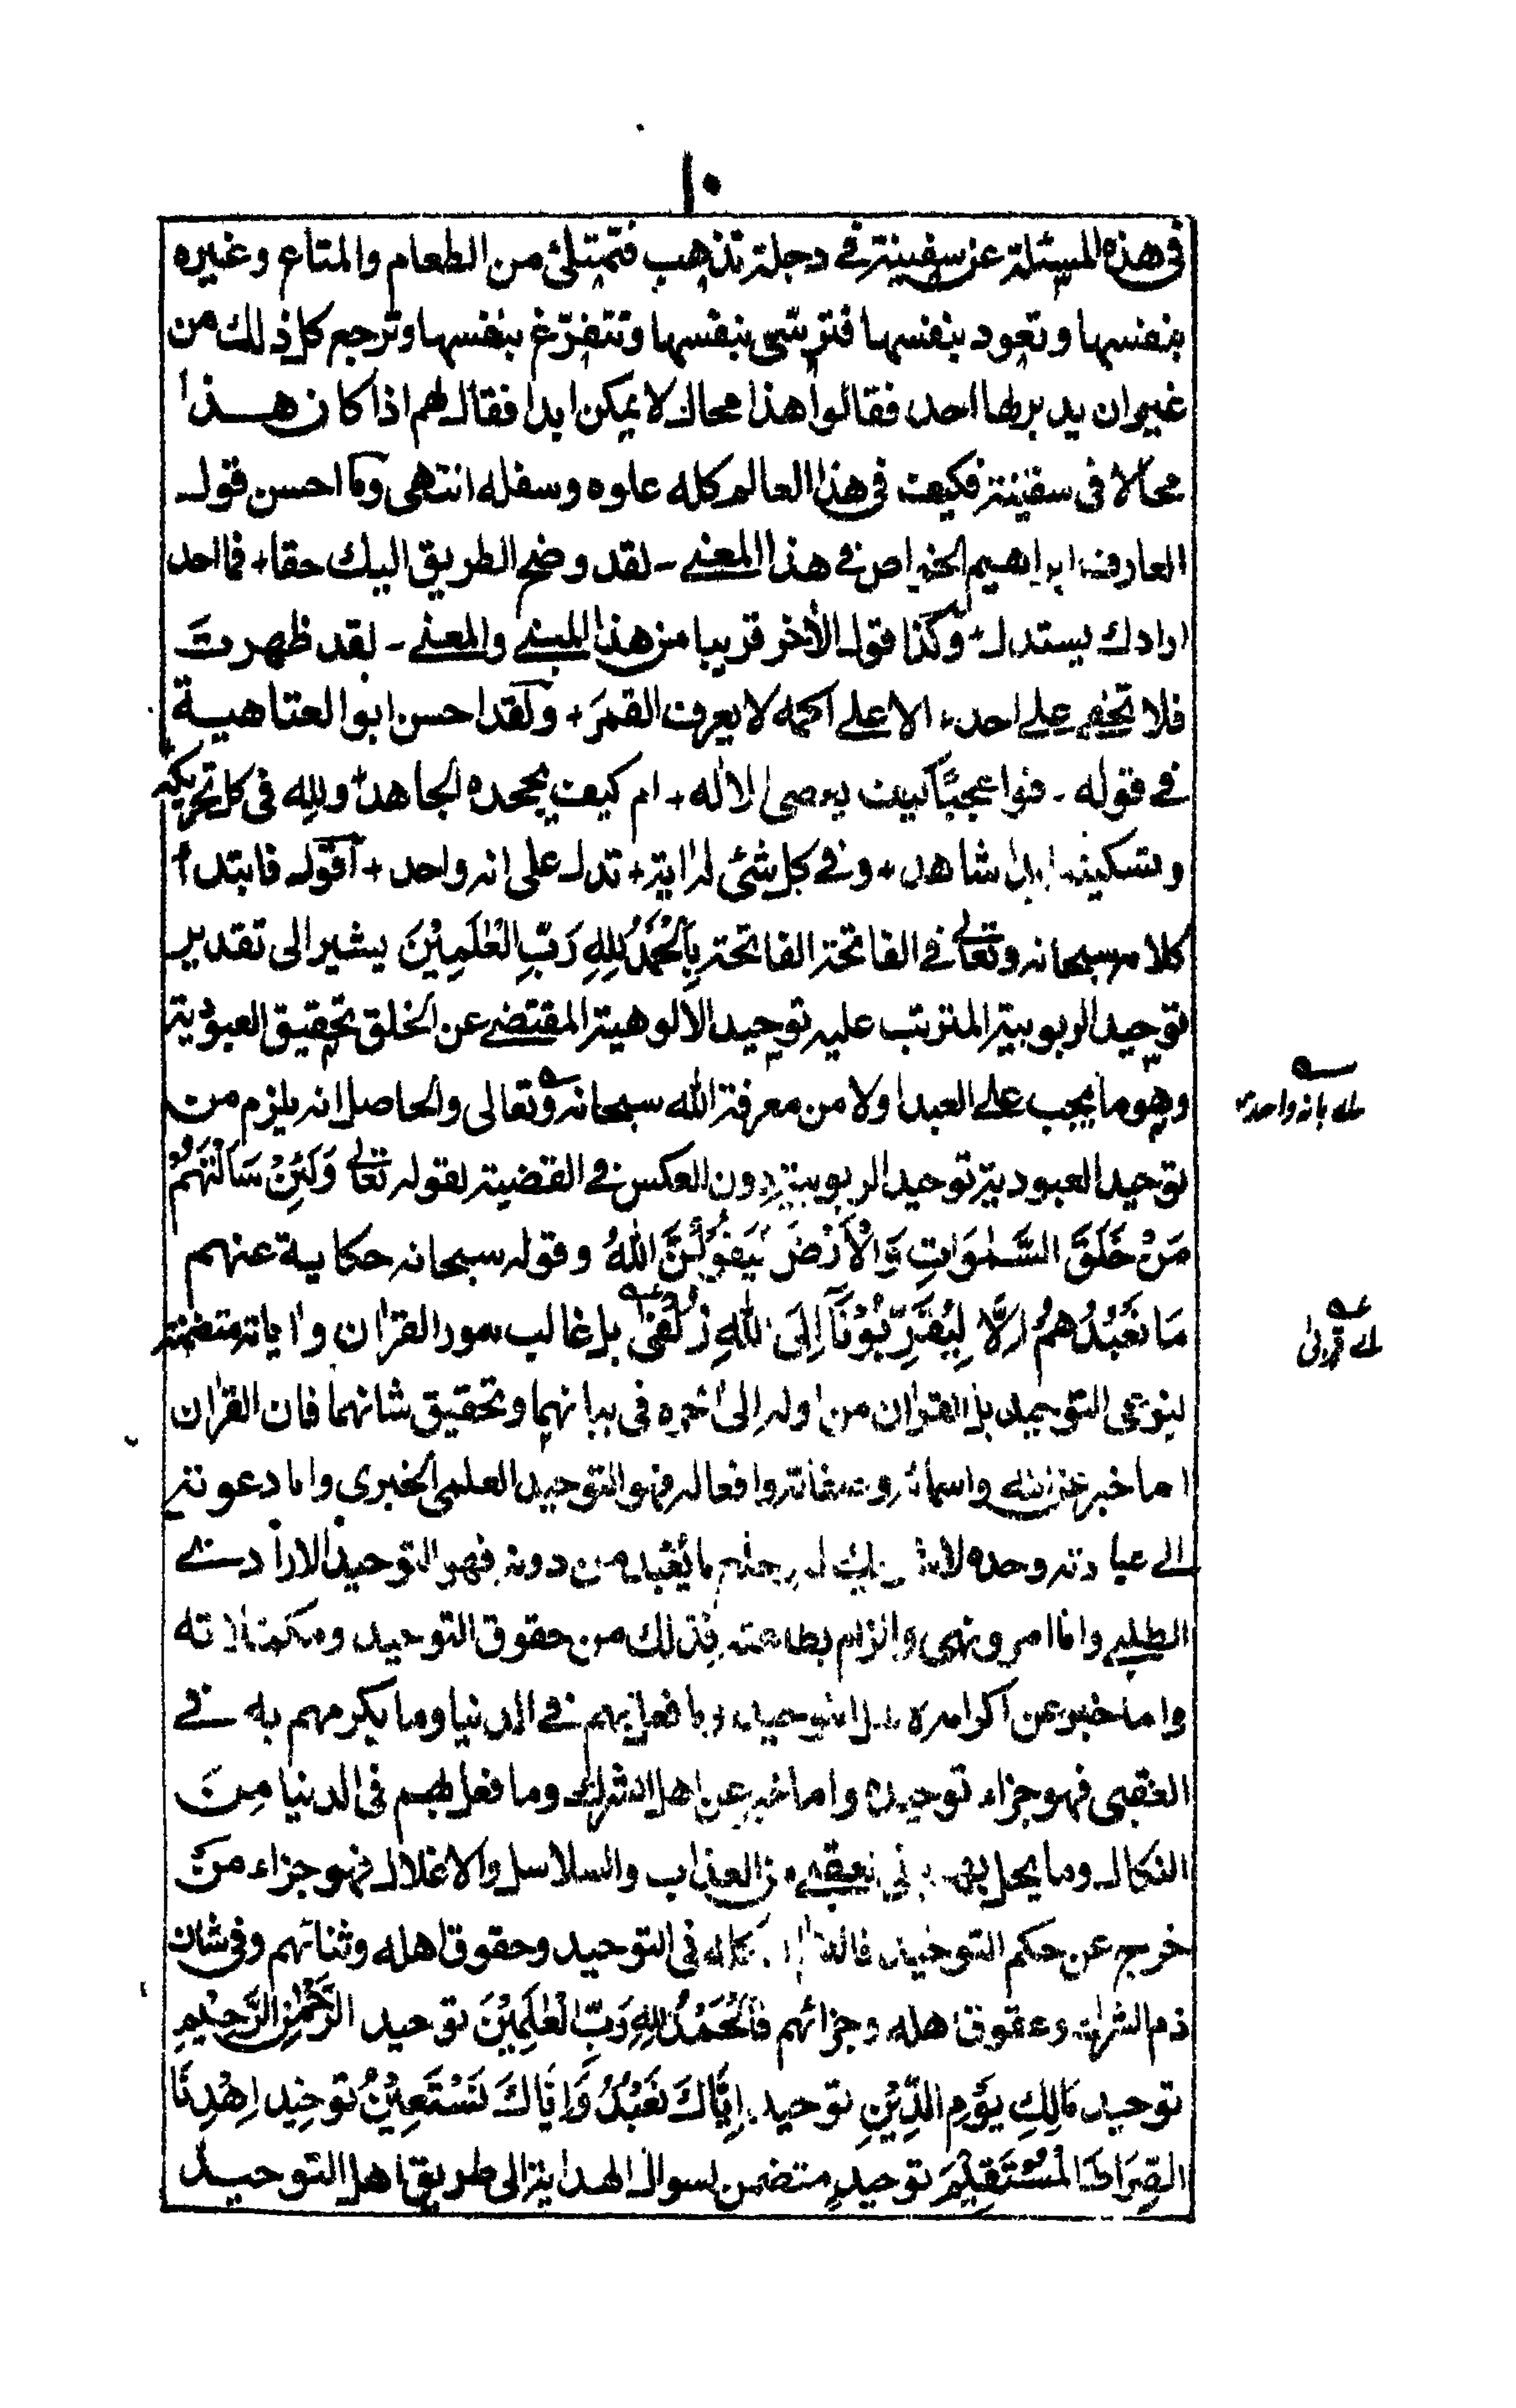 ١٠
في هذه المسئلة عن سفينة في دجلة تذهب فتمتلئ من الطعام والمتاع وغيره
بنفسها وتعود بنفسها فترسى بنفسها وتتفرّغ بنفسها وترجع كل ذلك من
غيران يدبرها احد فقالوا هذا محال لا يمكن ابدا فقال لهم اذا كان هذا
محالا في سفينة فكيف في هذا العالم كله علوه وسفله انتهى وما احسن قول
العارف ابراهيم الخواص في هذا المعنى - لقد وضح الطريق اليك حقا + فما احد
ارادك يستدل + وكذا قول الأخر قريبا من هذا المبنى والمعنى - لقد ظهرتَ
فلا تخفى على احد + الا على اكمه لا يعرف القمرَ + ولقد احسن ابو العتاهية
في قوله - فوا عجبًا كيف يعصى الاله + ام كيف يجحده الجاحد + ولله في كل تحريكة
وتسكينة ابدا شاهد + وفي كل شئ له اية + تدل على انه واحد + اقول فابتداء
كلامه سبحانه وتعالى في الفاتحة الفاتحة بِالْحَمْدُ لِلهِ رَبِّ الْعٰلَمِيْنَ يشير الى تقدير
توحيد الربوبية المترتب عليه توحيد الالوهية المقتضى عن الخلق تحقيق العبودية
وهو ما يجب على العبد اولا من معرفة الله سبحانه وتعالى والحاصل انه يلزم من
اى بانه واحد
توحيد العبودية توحيد الربوبية دون العكس في القضية لقوله تعالى وَلَئِنْ سَاَلْتَهُمْ
مَنْ خَلَقَ السَّمٰوَاتِ وَالْاَرْضَ لَيَقُوْلُنَّ اللهُ وقوله سبحانه حكاية عنهم
مَا نَعْبُدُهُمْ اِلَّا لِيُقَرِّبُوْنَا اِلَى اللهِ زُلْفٰى بل غالب سور القرٰان واياته متضمنة
اى قربى
لنوعى التوحيد بل القرٰان من اوله الى اٰخره في بيانهما وتحقيق شانهما فان القرٰان
اما خبر عن الله واسمائه وصفاته وافعاله فهو التوحيد العلمى الخبرى واما دعوته
الى عبادته وحده لا شريك له وخلع ما يُعبد من دونه فهو التوحيد الارادى
الطلبى واما امر ونهى والزام بطاعته فذلك من حقوق التوحيد ومكملاته
واما خبر عن اكرامه لاهل التوحيد وما فعل بهم في الدنيا وما يكرمهم به في
العقبى فهو جزاء توحيده واما خبر عن اهل الشرك وما فعل بهم في الدنيا مِنَ
النكال وما يحل بهم في العقبى من العذاب والسلاسل والاغلال فهو جزاء من
خرج عن حكم التوحيد فالقرٰان كله في التوحيد وحقوق اهله وثنائهم وفي شان
ذم الشرك وعقوق اهله وجزائهم فَالْحَمْدُ لِلهِ رَبِّ الْعٰلَمِيْنَ توحيد الرَّحْمٰنِ الرَّحِيْمِ
توحيد مَالِكِ يَوْمِ الدِّيْنِ توحيد اِيَّاكَ نَعْبُدُ وَاِيَّاكَ نَسْتَعِيْنُ توحيد اِهْدِنَا
الصِّرَاطَ الْمُسْتَقِيْمَ توحيد متضمن لسوال الهداية الى طريق اهل التوحيد